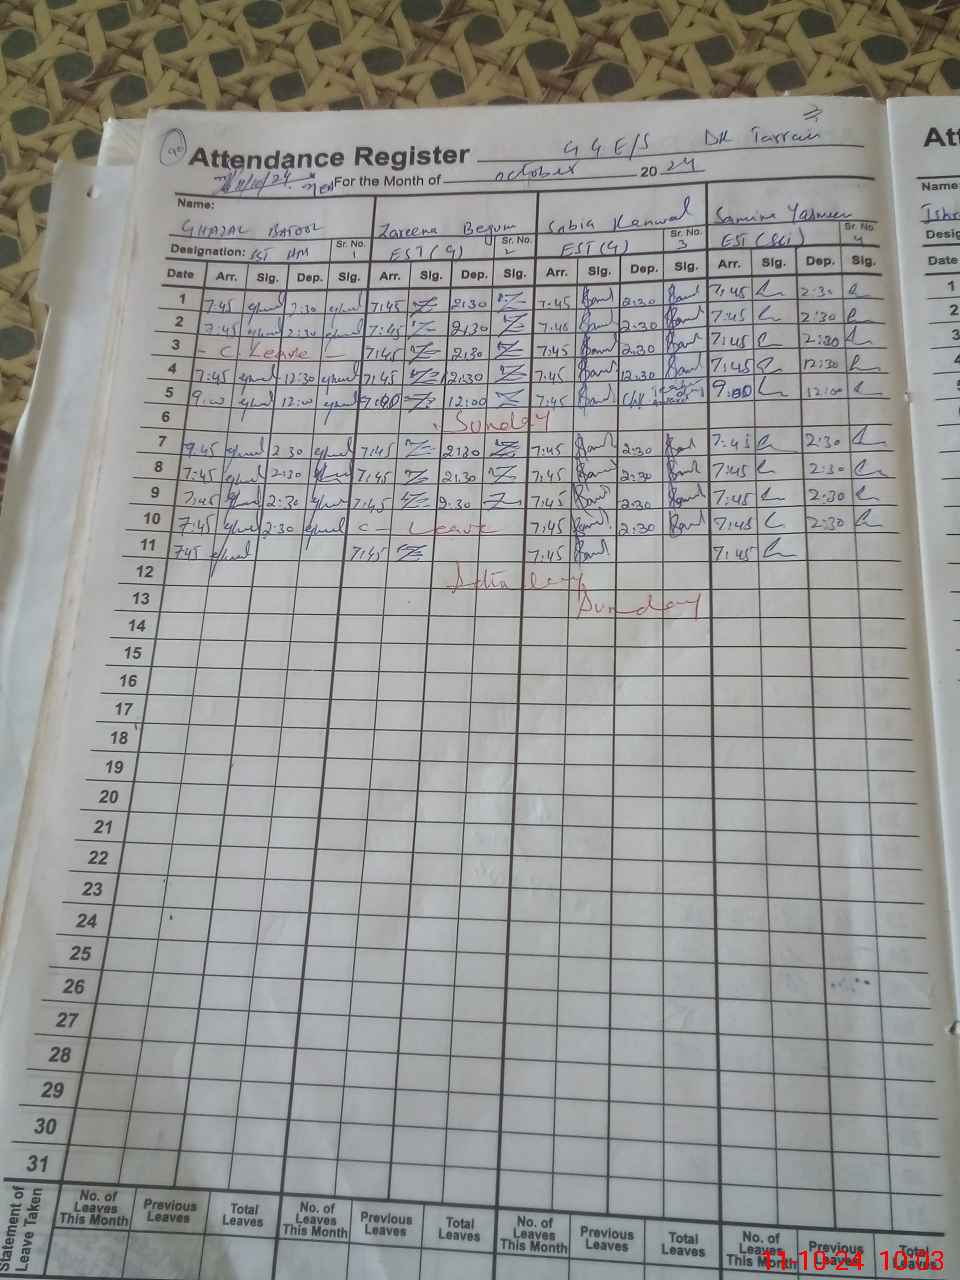 90
Attendance Register GGE/S DK Tarrain
11/10/24 For the Month of october 2024
Name: GHAZAL BATOOL Zareena Begum Sabia Kanwal Samina Yasmeen
Designation: PST HM Sr. No. 1 EST (G) Sr. No. 2 EST (G) Sr. No. 3 EST (Sci) Sr. No. 4
Date Arr. Sig. Dep. Sig. Arr. Sig. Dep. Sig. Arr. Sig. Dep. Sig. Arr. Sig. Dep. Sig.
1 7:45 2:30 7:45 2:30 7:45 2:30 7:45 2:30
2 7:45 2:30 7:45 2:30 7:45 2:30 7:45 2:30
3 - C. Leave - 7:45 2:30 7:45 2:30 7:45 2:30
4 7:45 12:30 7:45 12:30 7:45 12:30 7:45 12:30
5 9:00 12:00 9:00 12:00 7:45 9:00 12:00
6 Sunday
7 7:45 2:30 7:45 2:30 7:45 2:30 7:45 2:30
8 7:45 2:30 7:45 2:30 7:45 2:30 7:45 2:30
9 7:45 2:30 7:45 2:30 7:45 2:30 7:45 2:30
10 7:45 2:30 C- Leave 7:45 2:30 7:45 2:30
11 7:45 7:45 7:45 7:45
12
13 Sunday
14
15
16
17
18
19
20
21
22
23
24
25
26
27
28
29
30
31
Statement of Leave Taken
No. of Leaves This Month Previous Leaves Total Leaves No. of Leaves This Month Previous Leaves Total Leaves No. of Leaves This Month Previous Leaves Total Leaves No. of Leaves This Month Previous Leaves Total Leaves
11-10-24 10:03
Att
Name:
Desig
Date
1
2
3
4
5